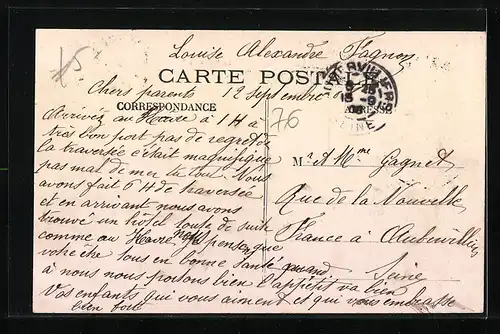 Louise Alexandre Fagnon
CARTE POSTALE
Chers parents 12 Septembre
CORRESPONDANCE
ADRESSE
15
76
Arrivée au Havre à 1 H a
très bon port pas de regret de
la traversée c'était magnifique
pas mal de mer du tout. Nous
avons fait 6 H de traversée
et en arrivant nous avons
trouvé un hotel toute de suite
comme au Havre nous penson que
votre ète tous en bonne santé quand
à nous nous portons bien l'appetit va bien
Vos enfants qui vous aiment et qui vous embrasse
bien fort
Mr & Mme Gagnet
Rue de la Nouvelle
France à Aubervilliers
Seine
AUBERVILLIERS
SEINE